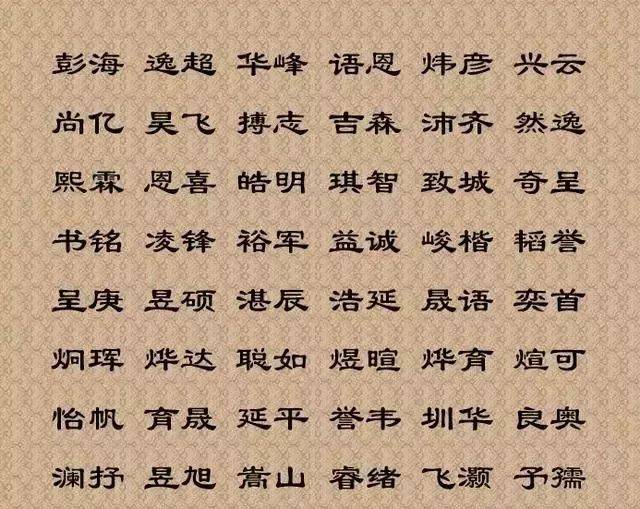 彭海 逸超 华峰 语恩 炜彦 兴云
尚亿 昊飞 搏志 吉森 沛齐 然逸
熙霖 恩喜 皓明 琪智 致城 奇呈
书铭 凌锋 裕军 益诚 峻楷 韬誉
呈庚 昱硕 湛辰 浩延 晟语 奕首
炯珲 烨达 聪如 煜暄 烨育 煊可
怡帆 育晟 延平 誉韦 圳华 良奥
澜抒 昱旭 嵩山 睿绪 飞灏 予孺